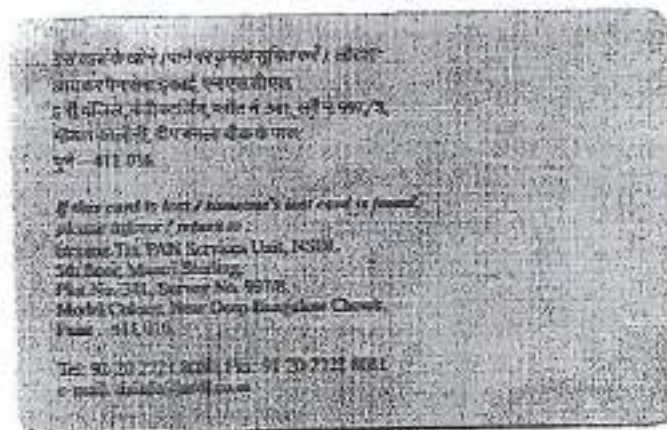 इस कार्ड के खोने / पाने पर कृपया सूचित करें / लौटाएं
आयकर पैन सेवा इकाई, एन एस डी एल
मंजिल, मंत्री स्टर्लिंग, प्लॉट नं. 341, सर्वे नं. 997/8,
मॉडल कालोनी, दीप बंगला चौक के पास,
पुणे - 411 016.
If this card is lost / someone's lost card is found,
please inform / return to :
Income Tax PAN Services Unit, NSDL
5th floor, Mantri Sterling,
Plot No. 341, Survey No. 997/8,
Model Colony, Near Deep Bungalow Chowk,
Pune - 411 016.
Tel: 91-20-2721 8080, Fax: 91-20-2721 8081
e-mail: